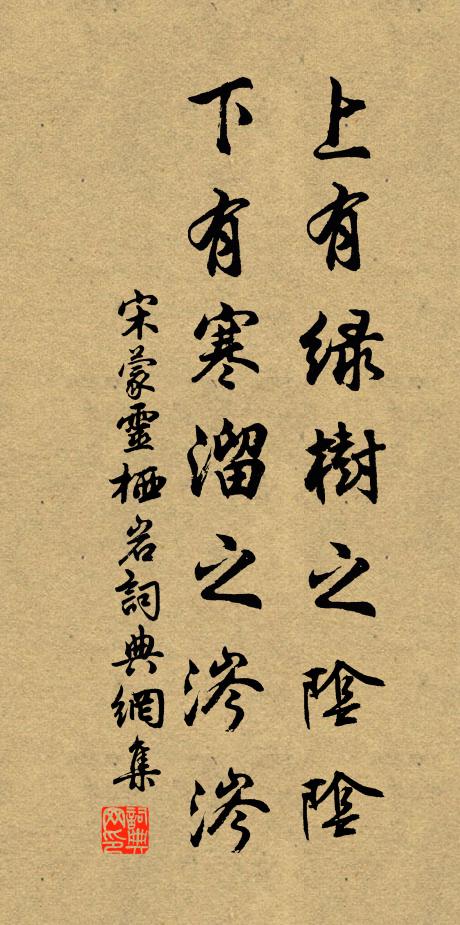 上有绿樹之陰陰
下有寒溜之涔涔
宋蒙靈栖岩詞典網集
詞典網印